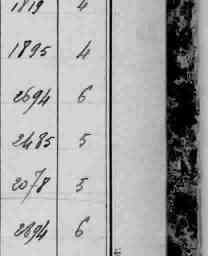 1819 4
1895 4
2694 6
2485 5
2078 5
2894 6